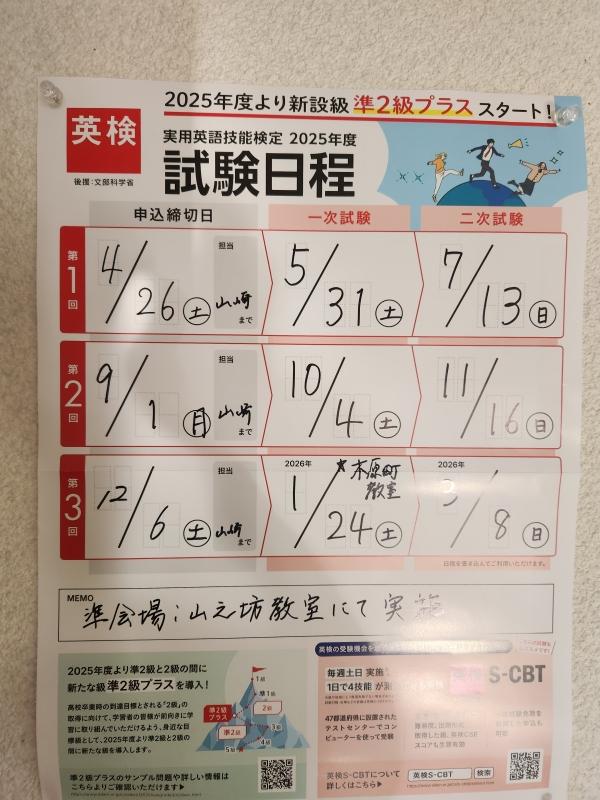 2025年度より新設級 準2級プラス スタート!
英検
後援:文部科学省
実用英語技能検定 2025年度
試験日程
申込締切日
一次試験
二次試験
第1回
4/26(土)
担当
山崎
まで
5/31(土)
7/13(日)
第2回
9/1(月)
担当
山崎
まで
10/4(土)
11/16(日)
第3回
12/6(土)
担当
山崎
まで
2026年
★木原町
教室
1/24(土)
2026年
3/8(日)
日程を書き込んでご利用いただけます。
MEMO
準会場:山之坊教室にて実施
2025年度より準2級と2級の間に
新たな級 準2級プラスを導入!
高校卒業時の到達目標とされる"2級"の
取得に向けて、学習者の皆様が前向きに学
習に取り組んでいただけるよう、身近な目
標級として、2025年度より準2級と2級の
間に新たな級を導入します。
1級
準1級
2級
準2級プラス
準2級
3級
4級
5級
準2級プラスのサンプル問題や詳しい情報は
こちらよりご確認いただけます▶
英検の受験機会を
毎週土日 実施
1日で4技能 が
S-CBT
47都道府県に設置された
テストセンターでコン
ピューターを使って受験
難易度、出題形式、
取得した級、英検CSE
スコアも生涯有効
英検S-CBTについて
詳しくはこちら▶
英検S-CBT
検索